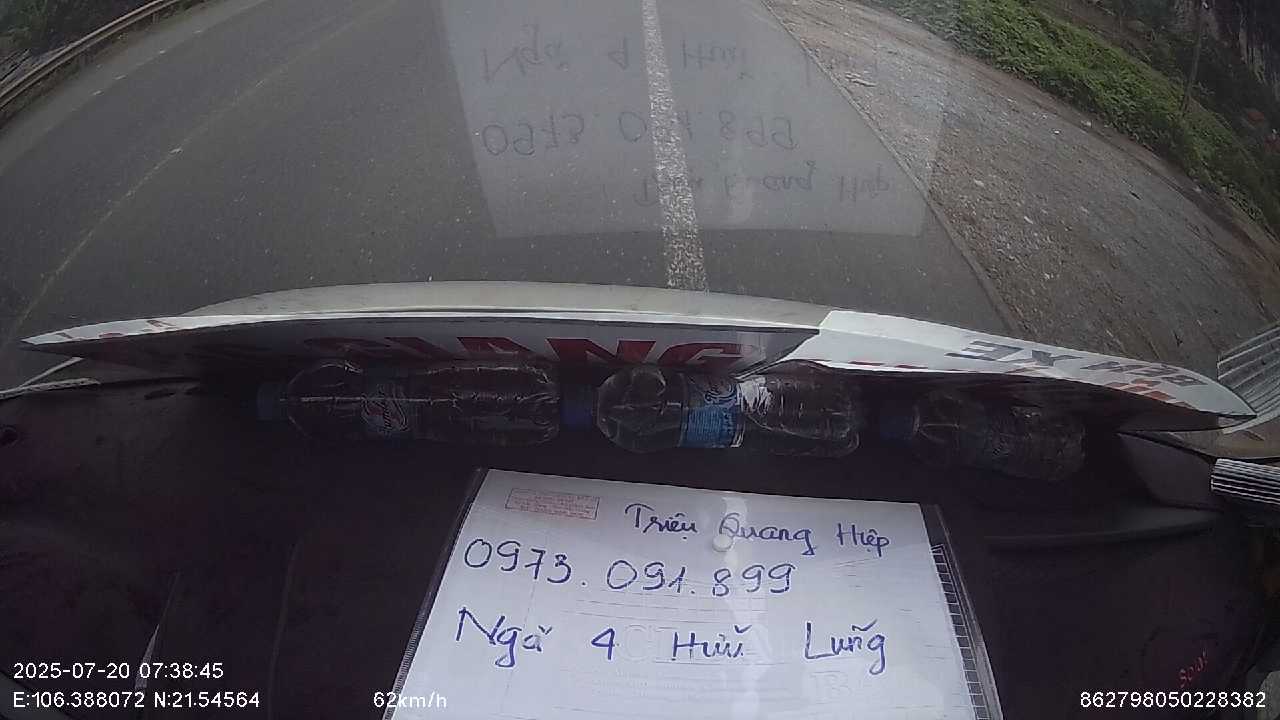 GIANG
BẾN XE
Triệu Quang Hiệp
0973.091.899
Ngã 4 Hữu Lũng
2025-07-20 07:38:45
E:106.388072 N:21.54564
62km/h
862798050228382